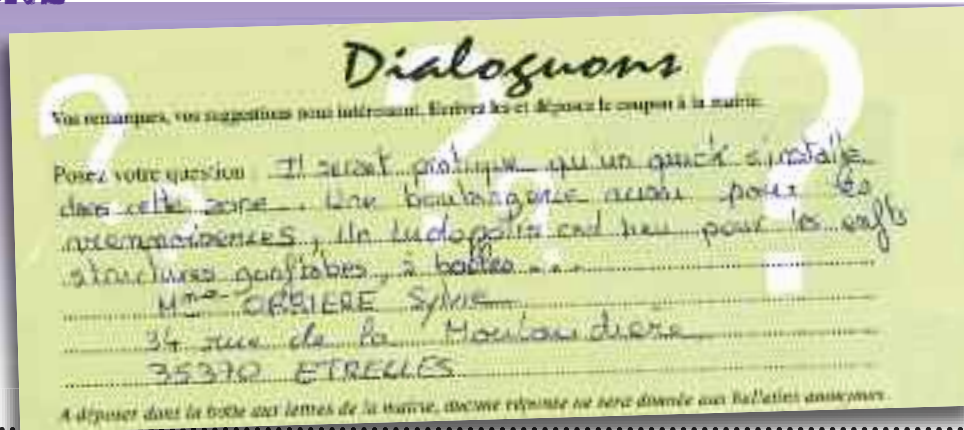 Dialoguons
Vos remarques, vos suggestions nous intéressent. Ecrivez les et déposez le coupon à la mairie.
Posez votre question : Il serait pratique qu'un quick s'installe
dans cette zone. Une boulangerie aussi pour les
, Un Ludopolis cad lieu pour les enfts
structures gonflables, à balles...
Mme ORRIERE Sylvie
34 rue de la
35370 ETRELLES
A déposer dans la boîte aux lettres de la mairie, aucune réponse ne sera donnée aux bulletins anonymes.